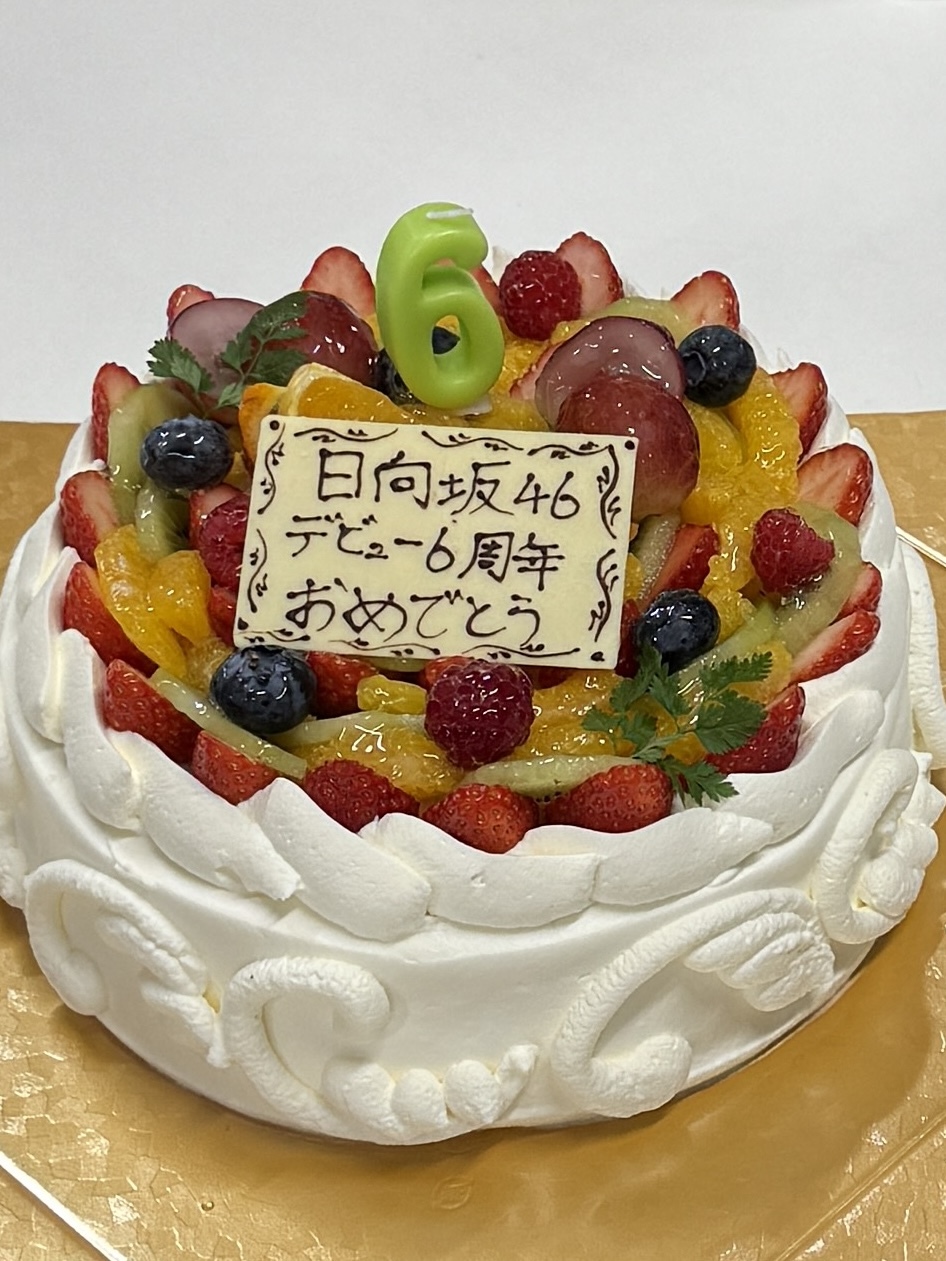 6
日向坂46
デビュー6周年
おめでとう